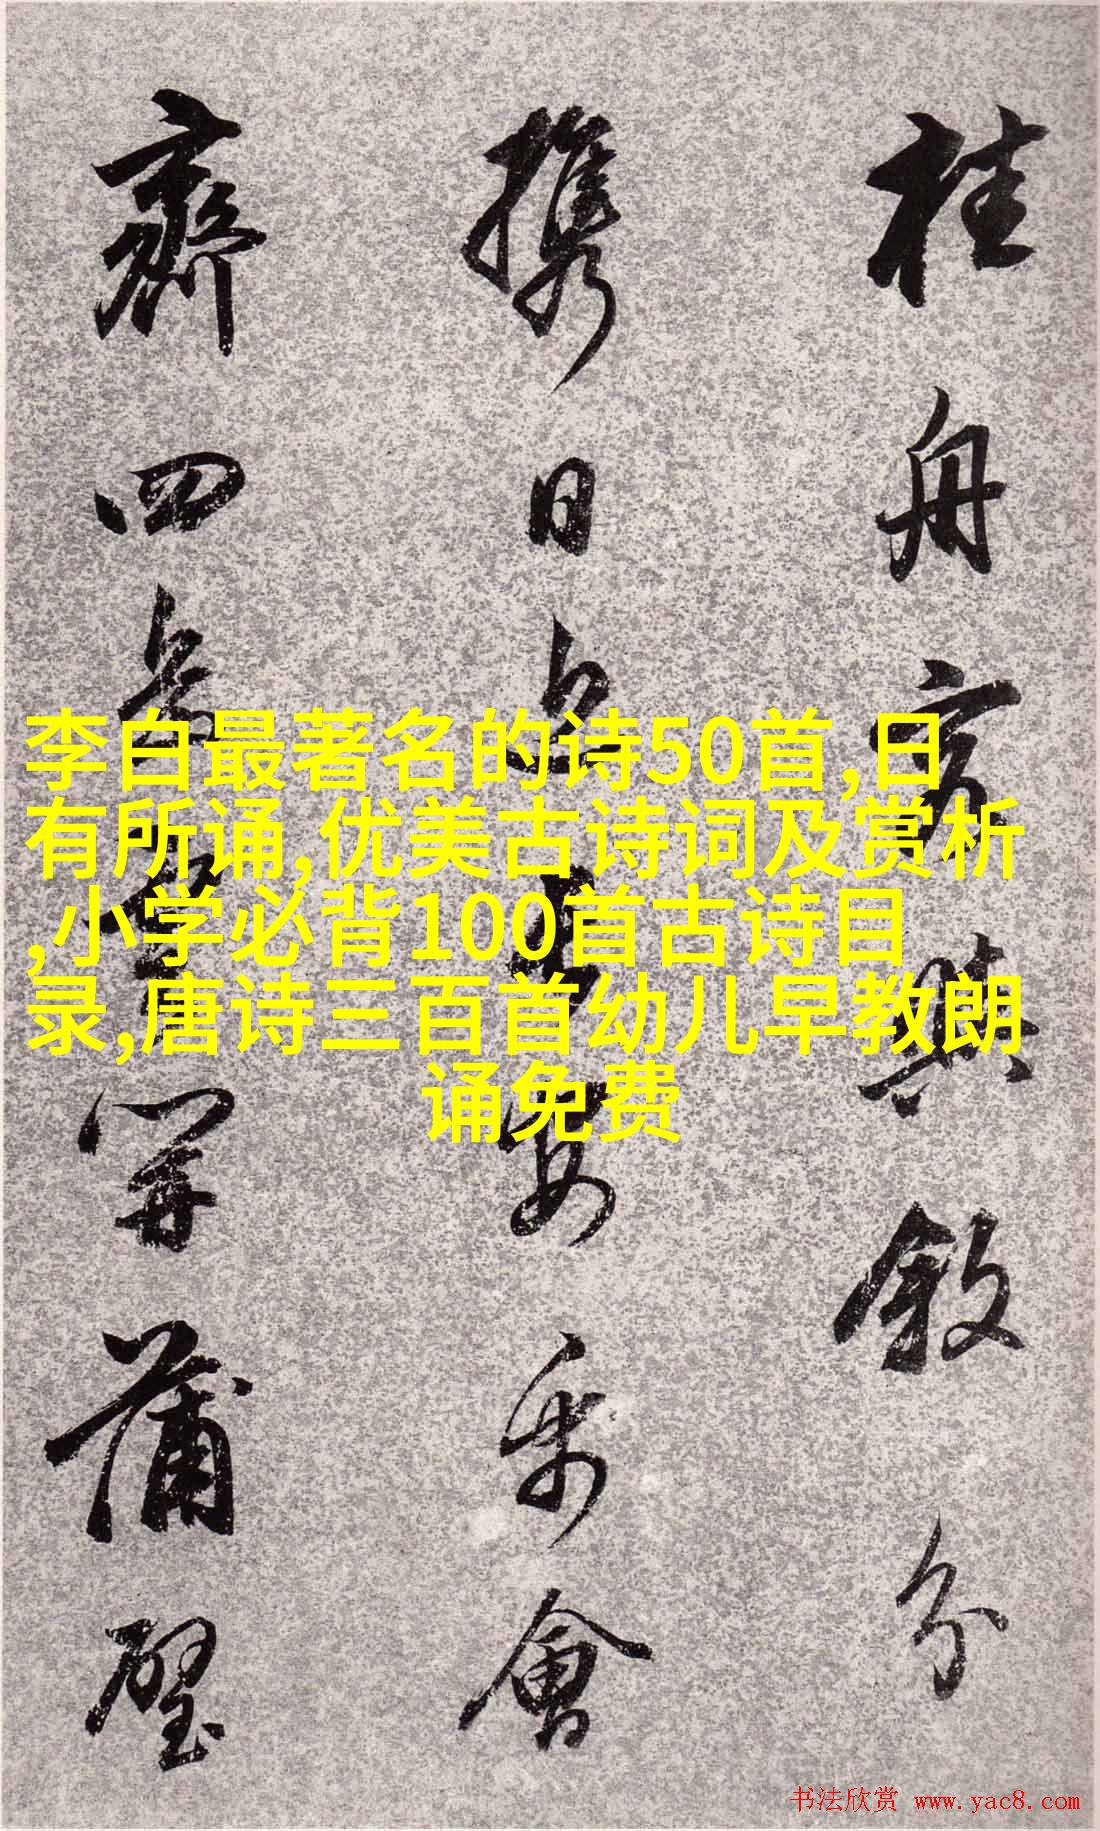 李白最著名的诗50首,日
有所诵,优美古诗词及赏析
,小学必背100首古诗目
录,唐诗三百首幼儿早教朗
诵免费
桂舟與敘分
攜日安樂會
齊四開蒲璧
书法欣赏 www.yac8.com